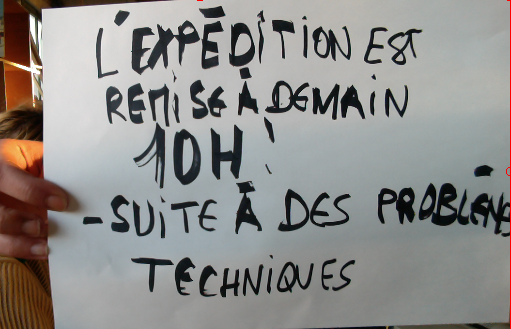 L'EXPÉDITION EST
REMISE À DEMAIN
10H !
- SUITE À DES PROBLÈMES
TECHNIQUES